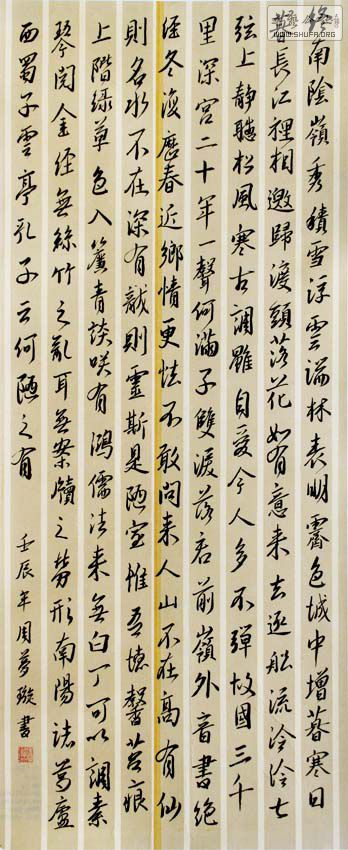 終南陰嶺秀積雪浮雲端林表明霽色城中增暮寒日
暮長江裡相邀歸渡頭落花如有意来去逐船流泠泠七
弦上靜聽松風寒古調雖自愛今人多不彈故國三千
里深宮二十年一聲何滿子雙淚落君前嶺外音書絕
經冬復歷春近鄉情更怯不敢問来人山不在高有仙
則名水不在深有龍則靈斯是陋室惟吾德馨苔痕
上階綠草色入簾青談咲有鴻儒往来無白丁可以調素
琴閱金經無絲竹之亂耳無案牘之勞形南陽諸葛廬
西蜀子雲亭孔子云何陋之有
壬辰年周夢璇書
WWW.SHUFR.ORG